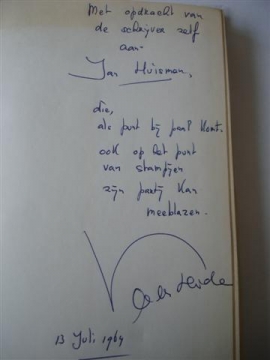 Met opdracht van
de schrijver zelf
aan-
Jan Huisman,
die,
als punt bij paal komt.
ook op het punt
van stampij
zijn partij kan
meeblazen.
13 Juli 1964